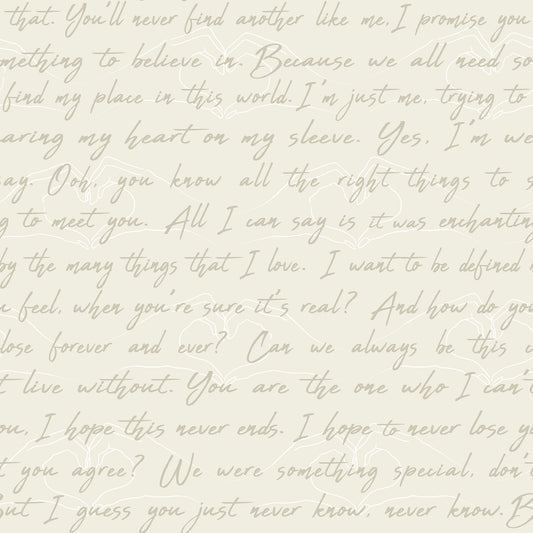 that. You'll never find another like me, I promise you
mething to believe in. Because we all need so
find my place in this world. I'm just me, trying to
aring my heart on my sleeve. Yes, I'm we
ay. Ooh, you know all the right things to s
g to meet you. All I can say is it was enchantin
by the many things that I love. I want to be defined
u feel, when you're sure it's real? And how do yo
lose forever and ever? Can we always be this c
t live without. You are the one who I can't
ou, I hope this never ends. I hope to never lose y
t you agree? We were something special, don't
But I guess you just never know, never know. B